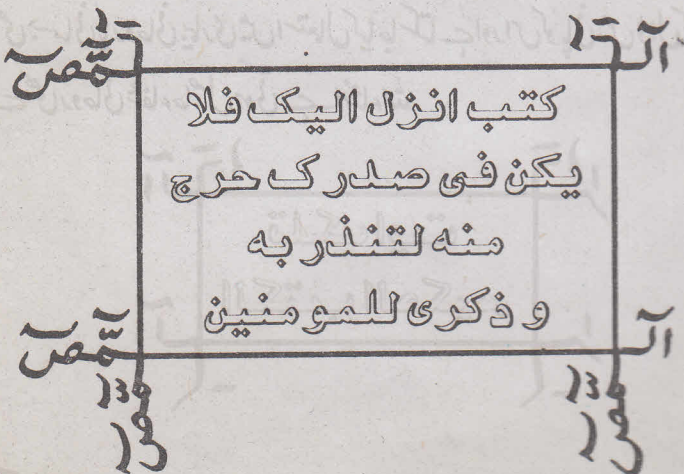 الٓمّٓصٓ
كتب انزل اليك فلا
يكن فى صدر ك حرج
منه لتنذر به
و ذكرى للمو منين
الٓمّٓصٓ
الٓمّٓصٓ
الٓمّٓصٓ